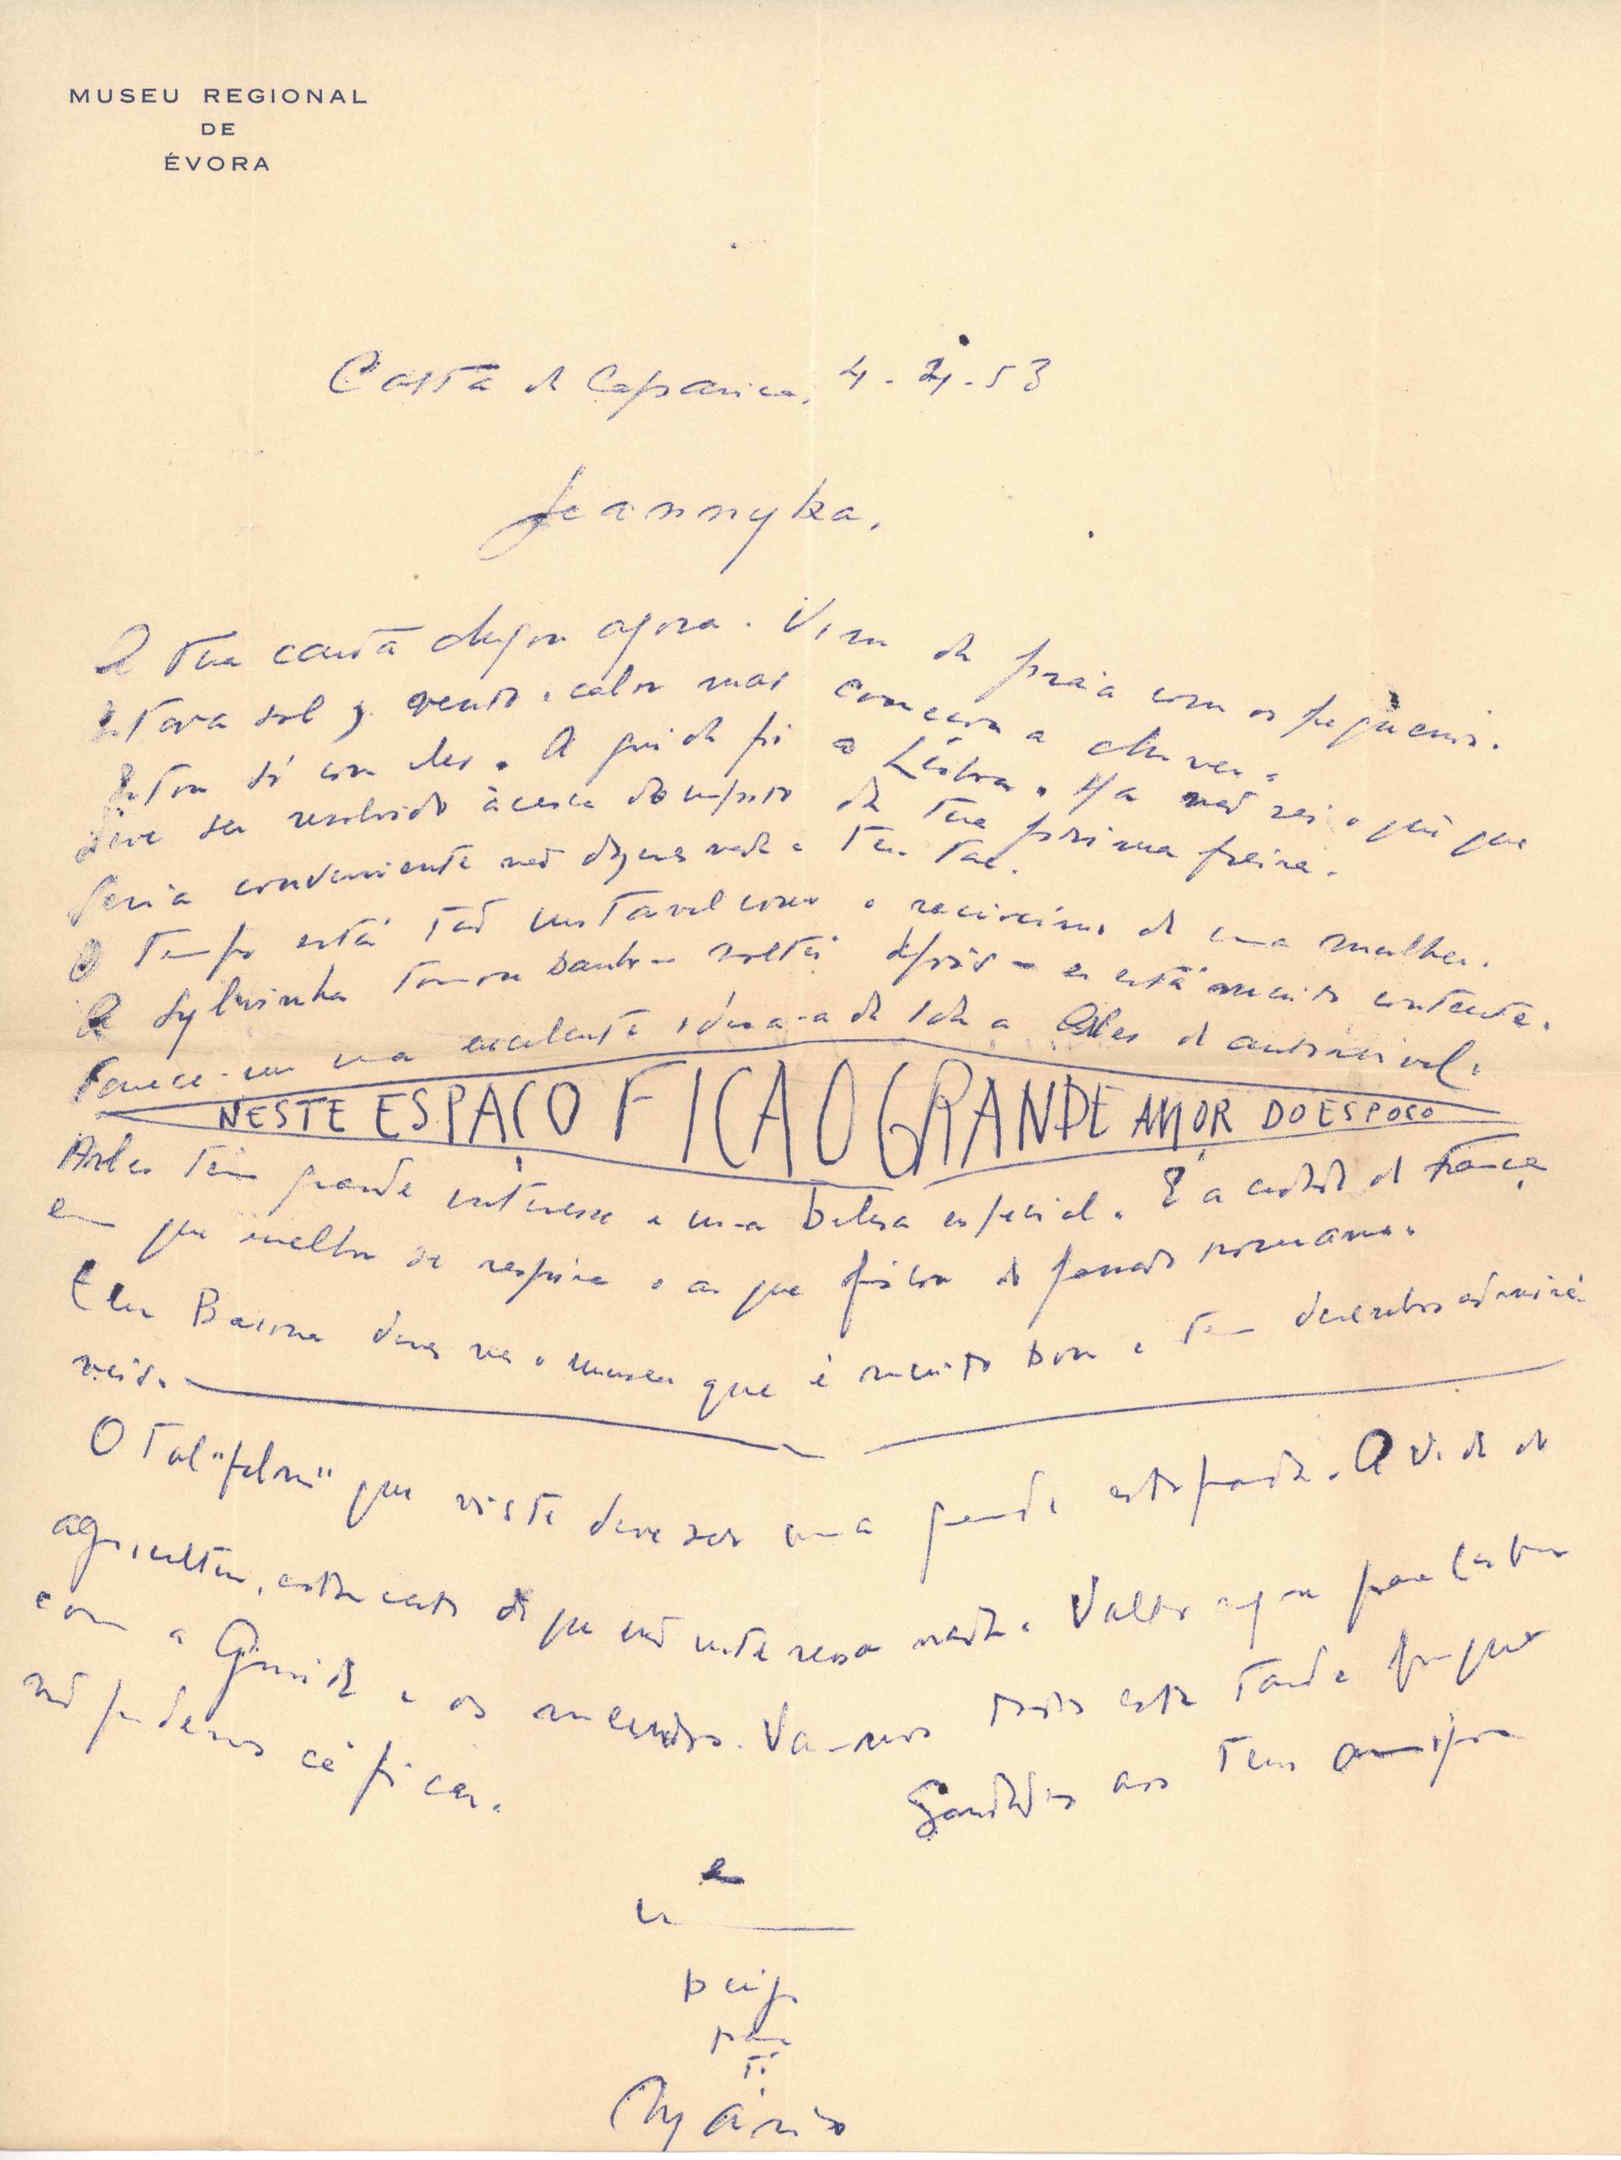 MUSEU REGIONAL
DE
ÉVORA
Costa de Caparica, 4.4.53
Jeannyka,
A tua carta chegou agora. Vim da praia com os pequenos.
Estava sol, vento e calor mas começou a chuver.
Estou só com eles. A Guida foi a Lisboa. Ha não sei o quê que
deve ser resolvido àcerca da tua prima freira.
Seria conveniente não dizeres nada a teu
O tempo está tão instavel como o raciocinio de uma mulher.
A Sylvinha tomou banho e voltei depois e está muito contente.
Parece-me uma excelente ideia a da ida a Arles de automovel.
NESTE ESPAÇO FICA O GRANDE AMOR DO ESPOSO
Arles tem grande interesse e uma beleza especial. É a cidade de França
em que melhor se respira o ar que ficou do passado romano.
Em Baiona deves ver o museu que é muito bom e tem desenhos admirá-
veis.
O tal "filme" que viste deve ser uma grande estopada. A vida de
agricultor, estou certo de que não interessa nada. Volto agora para Lisboa
com a Guida e os meninos. Vamos todos esta tarde porque
não podemos cá ficar.
Saudades aos teus amigos
e
um
beijo
para
ti
Mário